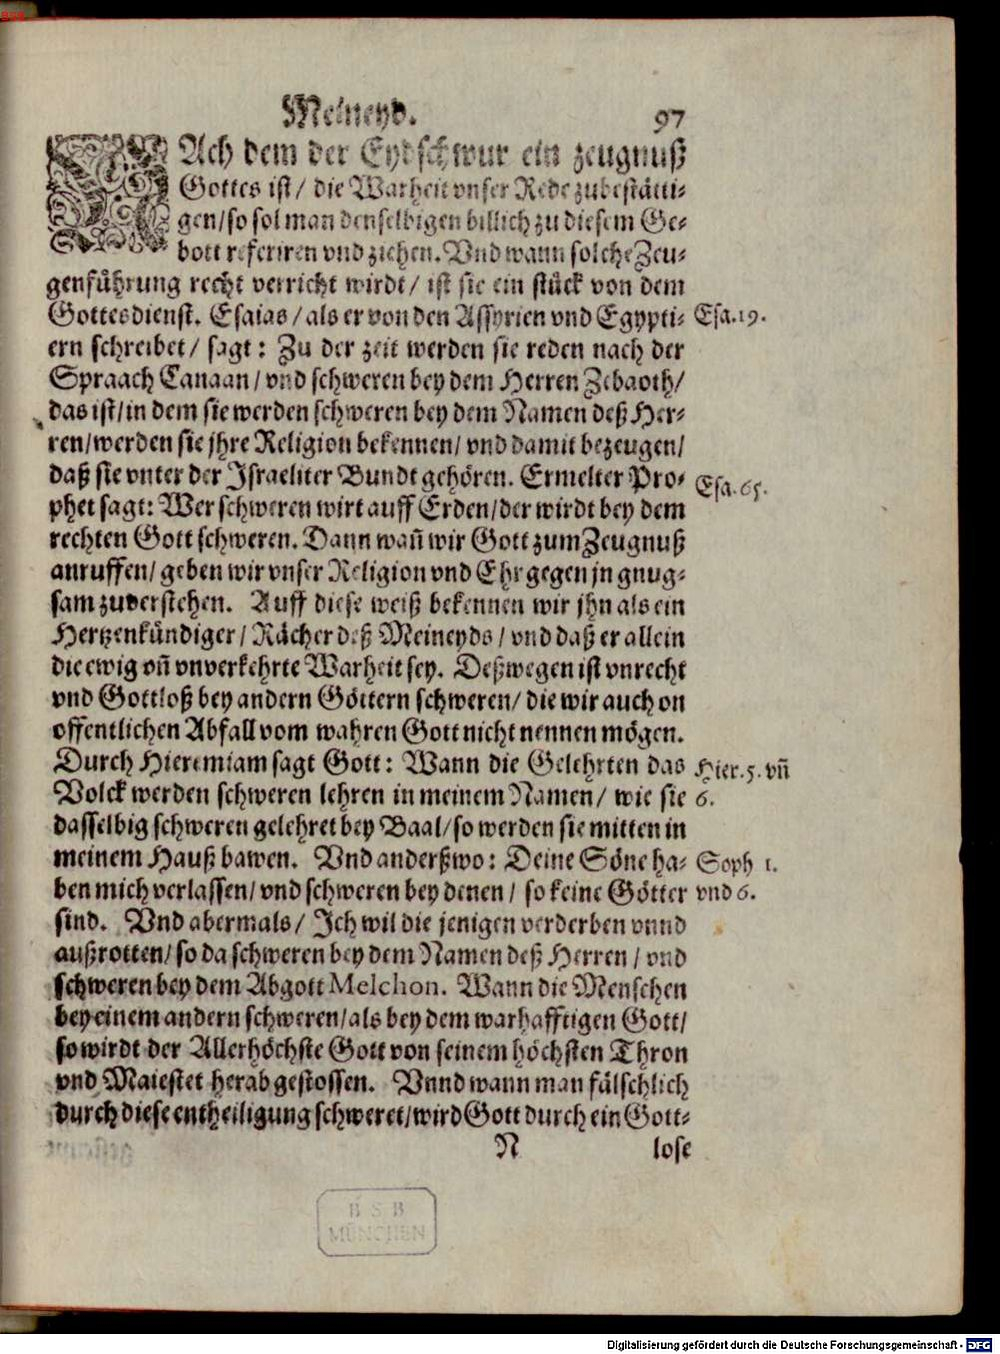 Meineyd. 97
NAch dem der Eydschwur ein zeugnuß
Gottes ist/ die Warheit vnser Rede zubestätti-
gen/ so sol man denselbigen billich zu diesem Ge-
bott referiren vnd ziehen. Vnd wann solche Zeu-
genführung recht verricht wirdt/ ist sie ein stück von dem
Gottesdienst. Esaias/ als er von den Assyrien vnd Egypti- Esa. 19.
ern schreibet/ sagt: Zu der zeit werden sie reden nach der
Spraach Canaan/ vnd schweren bey dem Herren Zebaoth/
das ist/ in dem sie werden schweren bey dem Namen deß Her-
ren/ werden sie jhre Religion bekennen/ vnd damit bezeugen/
daß sie vnter der Israeliter Bundt gehören. Ermelter Pro- Esa. 65.
phet sagt: Wer schweren wirt auff Erden/ der wirdt bey dem
rechten Gott schweren. Dann wañ wir Gott zum Zeugnuß
anruffen/ geben wir vnser Religion vnd Ehr gegen jn gnug-
sam zuverstehen. Auff diese weiß bekennen wir jhn als ein
Hertzenkündiger/ Rächer deß Meineyds/ vnd daß er allein
die ewig vñ vnverkehrte Warheit sey. Deßwegen ist vnrecht
vnd Gottloß bey andern Göttern schweren/ die wir auch on
offentlichen Abfall vom wahren Gott nicht nennen mögen.
Durch Hieremiam sagt Gott: Wann die Gelehrten das Hier. 5. vñ
Volck werden schweren lehren in meinem Namen/ wie sie 6.
dasselbig schweren gelehret bey Baal/ so werden sie mitten in
meinem Hauß bawen. Vnd anderßwo: Deine Söne ha- Soph 1.
ben mich verlassen/ vnd schweren bey denen/ so keine Götter vnd 6.
sind. Vnd abermals/ Ich wil die jenigen verderben vnnd
außrotten/ so da schweren bey dem Namen deß Herren/ vnd
schweren bey dem Abgott Melchon. Wann die Menschen
bey einem andern schweren/ als bey dem warhafftigen Gott/
so wirdt der Allerhöchste Gott von seinem höchsten Thron
vnd Maiestet herab gestossen. Vnnd wann man fälschlich
durch diese entheiligung schweret/ wird Gott durch ein Gott-
N lose
B S B
MÜNCHEN
Digitalisierung gefördert durch die Deutsche Forschungsgemeinschaft - DFG